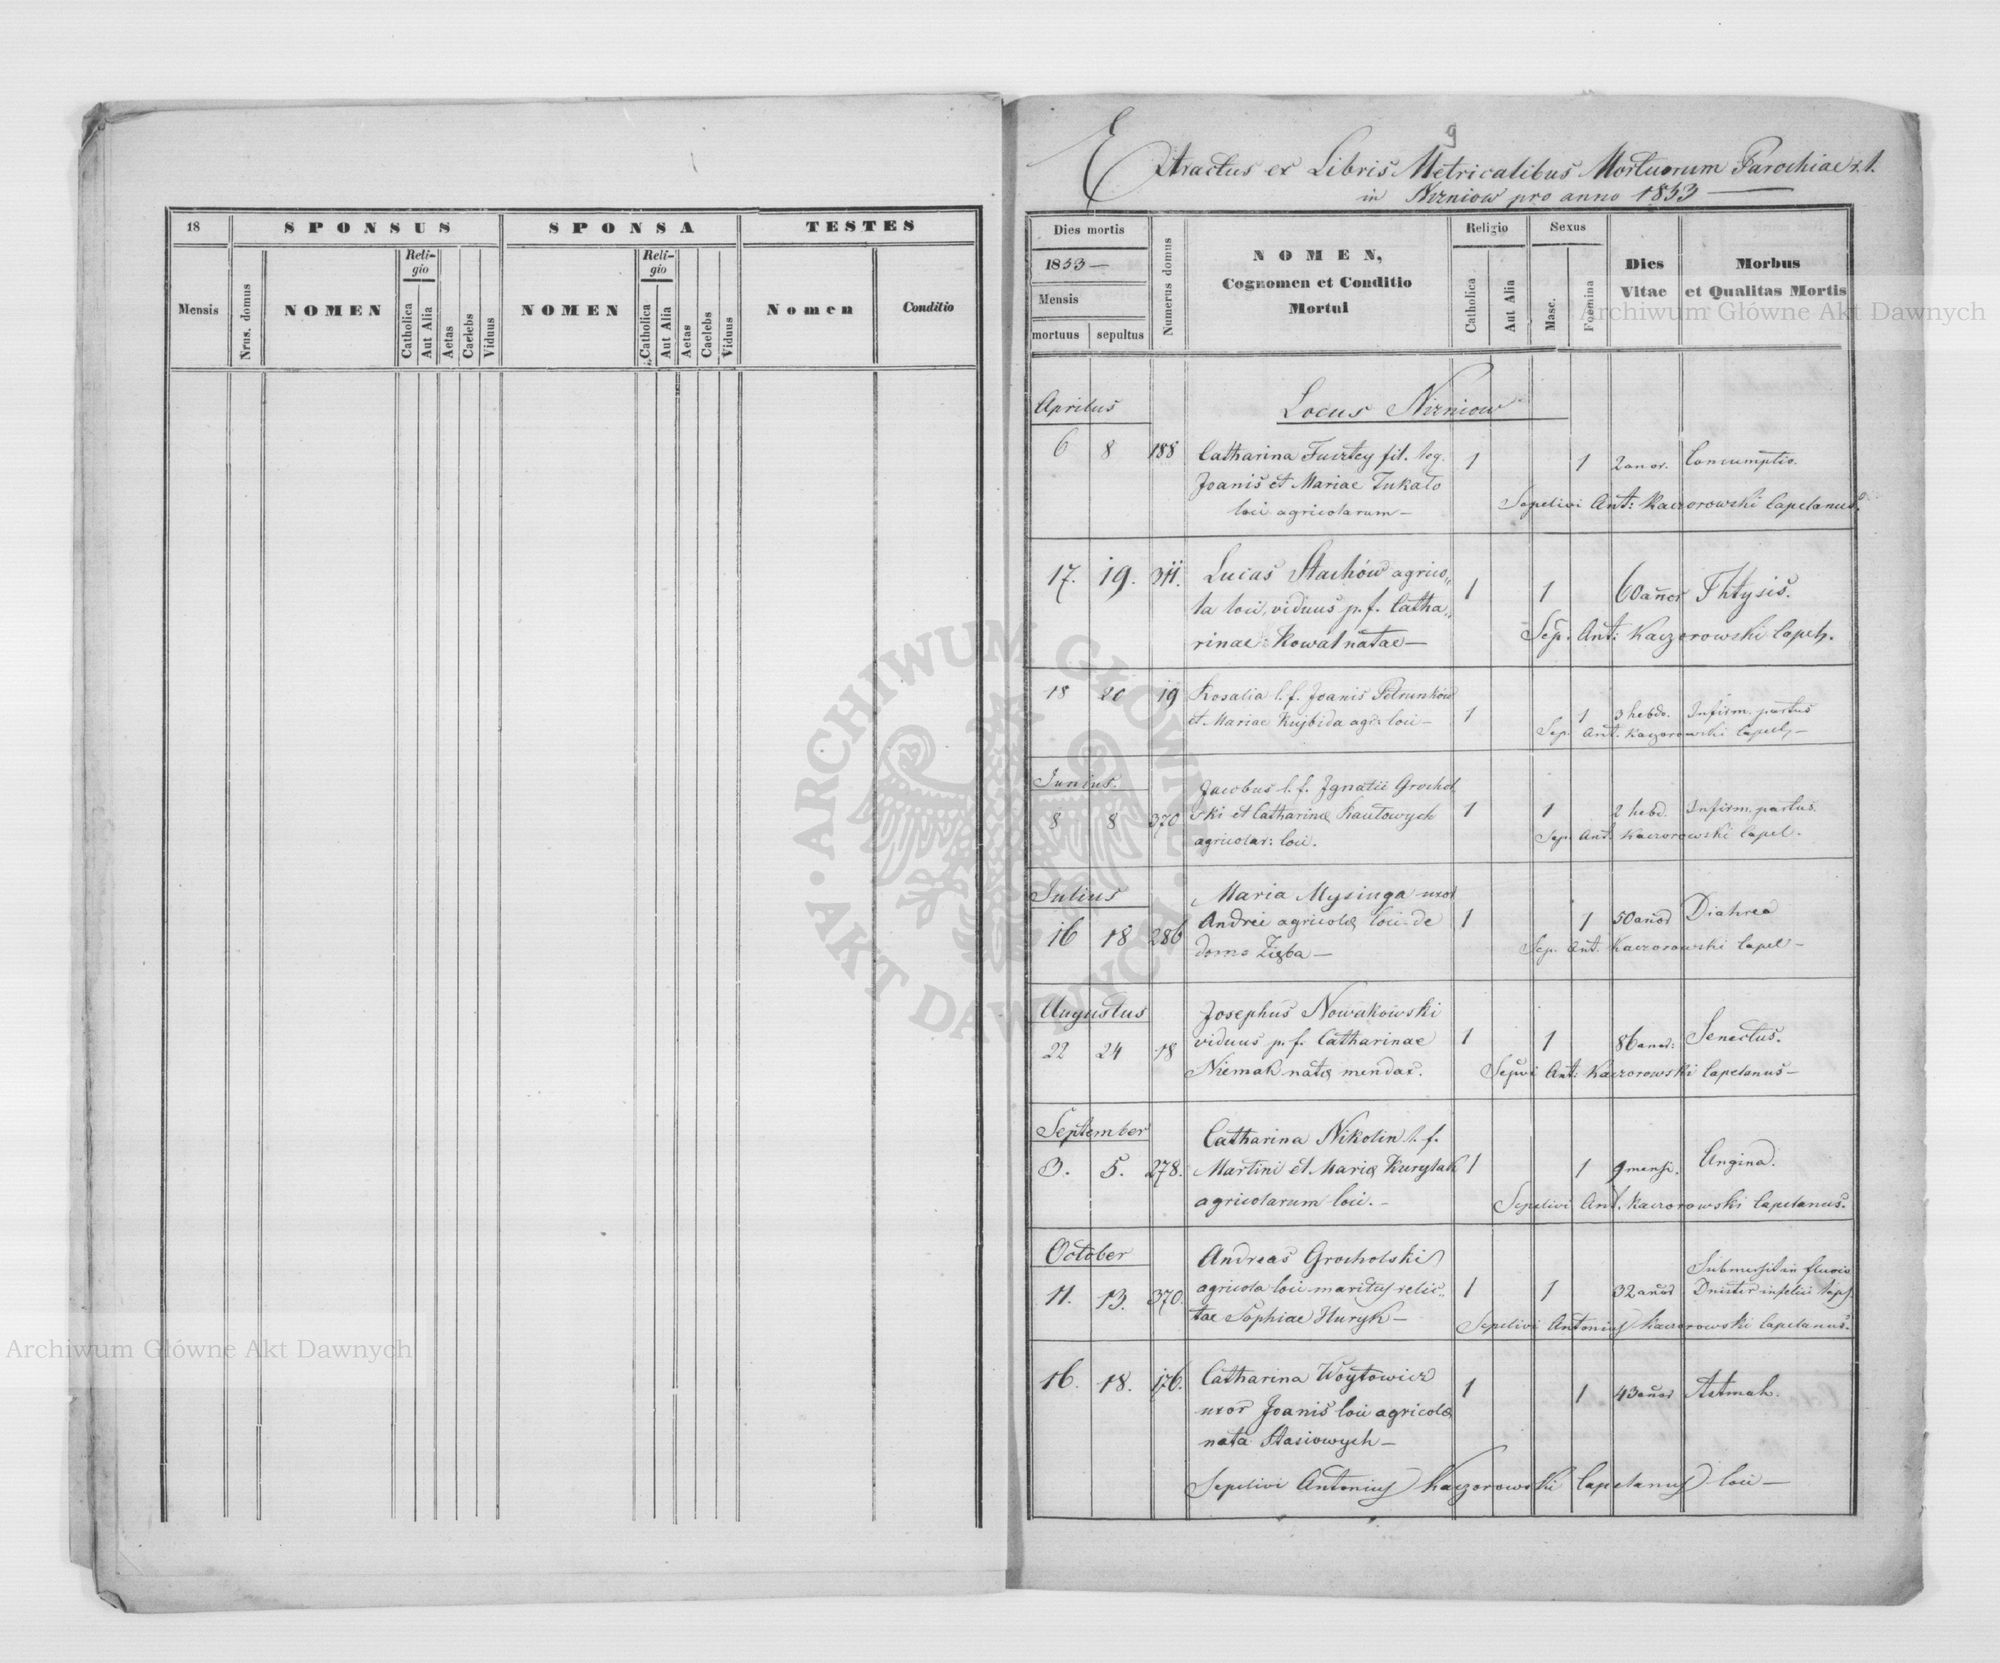 18
SPONSUS
SPONSA
TESTES
Mensis
Nrus. domus
NOMEN
Reli-
gio
Catholica
Aut Alia
Aetas
Caelebs
Viduus
NOMEN
Reli-
gio
Catholica
Aut Alia
Aetas
Caelebs
Viduus
Nomen
Conditio
9
Extractus ex Libris Metricalibus Mortuorum Parochiae r. l.
in Nizniow pro anno 1853
Dies mortis
1853
Mensis
mortuus sepultus
Numerus domus
NOMEN,
Cognomen et Conditio
Mortui
Religio
Catholica
Aut Alia
Sexus
Masc.
Foemina
Dies
Vitae
Morbus
et Qualitas Mortis
Aprilus
Locus Nizniow
6 8 188 Catharina fil. leg. 1 1 2 anor. Consumptio.
Joanis et Mariae Tukalo
loci agricolarum —
Sepelivi Ant: Kaczorowski Capelanus.
17. 19. 311. Lucas Stachów agrico„ 1 1 60 anor Phtysis.
la loci, viduus p. f. Catha„
rinae Kowal natae —
Sep. Ant: Kaczorowski Capel.
18 20 19 Rosalia l. f. Joanis Petrunków 1 1 3 hebdo. Infirm. partus
et Mariae Kujbida agr: loci —
Sep. Ant. Kaczorowski Capel. —
Junius.
8 8 370 Jacobus l. f. Ignatii Grochol 1 1 2 hebd. Infirm. partus.
ski et Catharinæ Kautowych
agricolar: loci.
Sep. Ant. Kaczorowski Capel.
Julius
16 18 286 Maria Mysiuga uxor 1 1 50 anor Diahrea
Andrei agricolæ loci de
domo Zięba —
Sep. Ant. Kaczorowski Capel —
Augustus
22 24 18 Josephus Nowakowski 1 1 86 anor: Senectus.
viduus p. f. Catharinae
Niemak natæ mendax.
Sepvi Ant: Kaczorowski Capelanus —
September
3. 5. 278. Catharina Nikolin l. f. 1 1 9 mensi. Angina.
Martini et Mariæ Kurylak
agricolarum loci. —
Sepelivi Ant. Kaczorowski Capelanus.
October
11. 13. 370. Andreas Grocholski 1 1 32 anor Submersit in fluvio
agricola loci maritus relic„ Dnister infelici
tae Sophiae Huryk —
Sepelivi Antonius Kaczorowski Capelanus.
16. 18. 176. Catharina Woytowicz 1 1 43 anor Astmah.
uxor Joanis loci agricolæ
nata Stasiowych —
Sepelivi Antonius Kaczorowski Capelanus loci —
Archiwum Główne Akt Dawnych
Archiwum Główne Akt Dawnych
ARCHIWUM GŁÓWNE AKT DAWNYCH